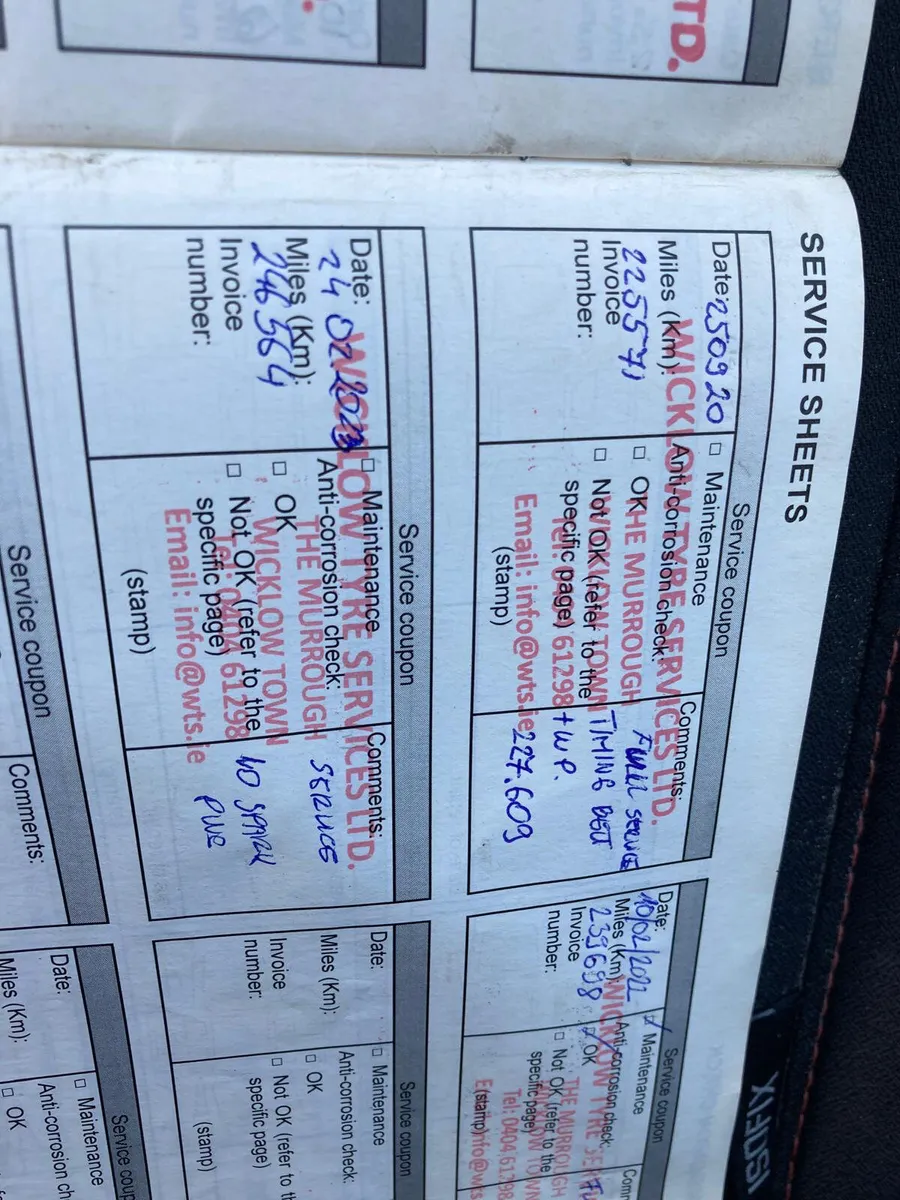 TD.
SERVICE SHEETS
Service coupon
Date: 250920
Miles (Km):
225571
Invoice
number:
□ Maintenance
Anti-corrosion check:
□ OK
□ Not OK (refer to the
specific page)
(stamp)
Comments:
FULL SERVICE
TIMING BELT
+ W.P.
227.609
WICKLOW TYRE SERVICES LTD.
THE MURROUGH
WICKLOW TOWN
61298
Email: info@wts.ie
Service coupon
Date: 10/02/2022
Miles (Km):
239698
Invoice
number:
Maintenance
Anti-corrosion check:
OK
□ Not OK (refer to the
specific page)
(stamp)
Comm
WICKLOW TYRE SE
THE MURROUGH
WICKLOW TOWN
Tel: 0404 61298
info@wts
Service coupon
Date:
24 02 2023
Miles (Km):
246964
Invoice
number:
□ Maintenance
Anti-corrosion check:
□ OK
□ Not OK (refer to the
specific page)
(stamp)
Comments:
SERVICE
NO SPARK
WICKLOW TYRE SERVICES LTD.
THE MURROUGH
WICKLOW TOWN
61298
Email: info@wts.ie
Service coupon
Date:
Miles (Km):
Invoice
number:
□ Maintenance
Anti-corrosion check:
□ OK
□ Not OK (refer to th
specific page)
(stamp)
Service coupon
Comments:
Service coup
Date:
Miles (Km):
□ Maintenance
Anti-corrosion ch
□ OK
ISOFIX